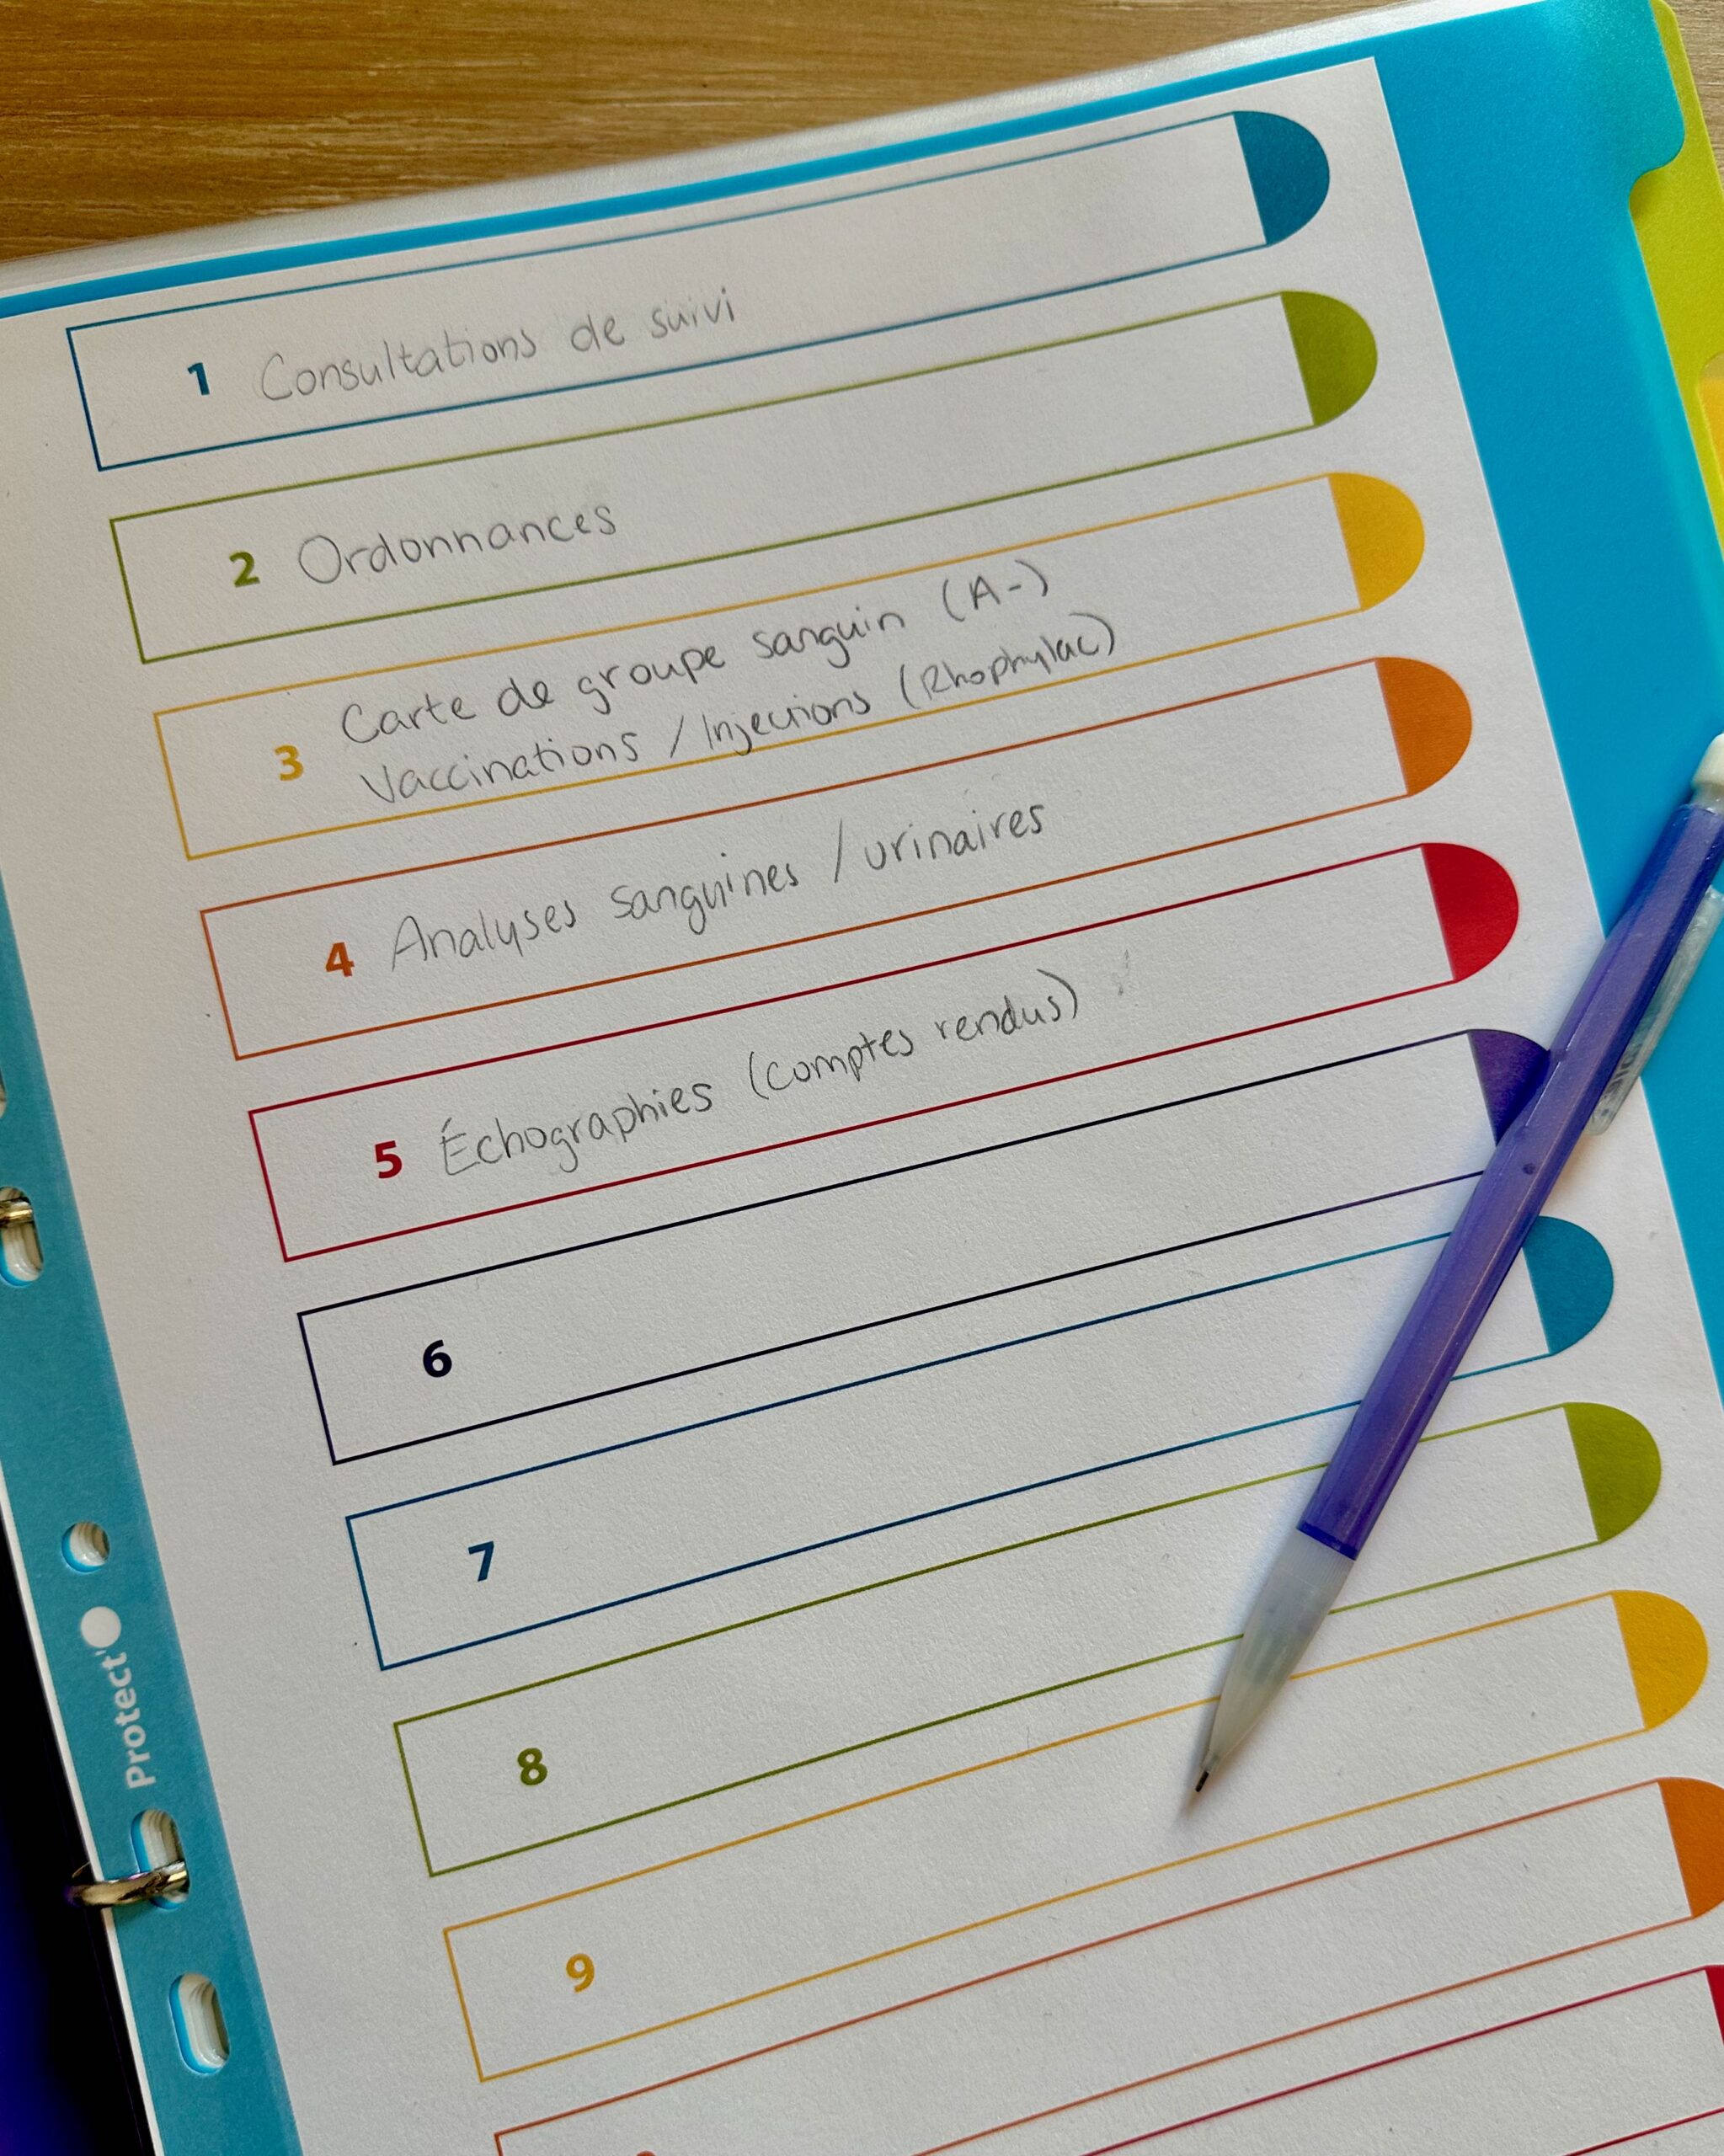 1 Consultations de suivi
2 Ordonnances
3 Carte de groupe sanguin (A-)
Vaccinations / Injections (Rhophylac)
4 Analyses sanguines / urinaires
5 Échographies (comptes rendus)
6
7
8
9
Protect'